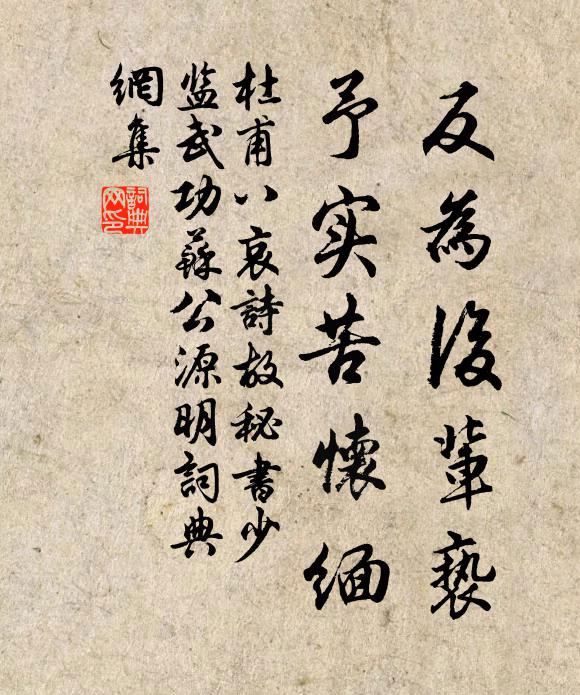 反為後輩褻
予实苦懷緬
杜甫八哀詩故秘書少
监武功蘇公源明詞典
網集
詞典
网印